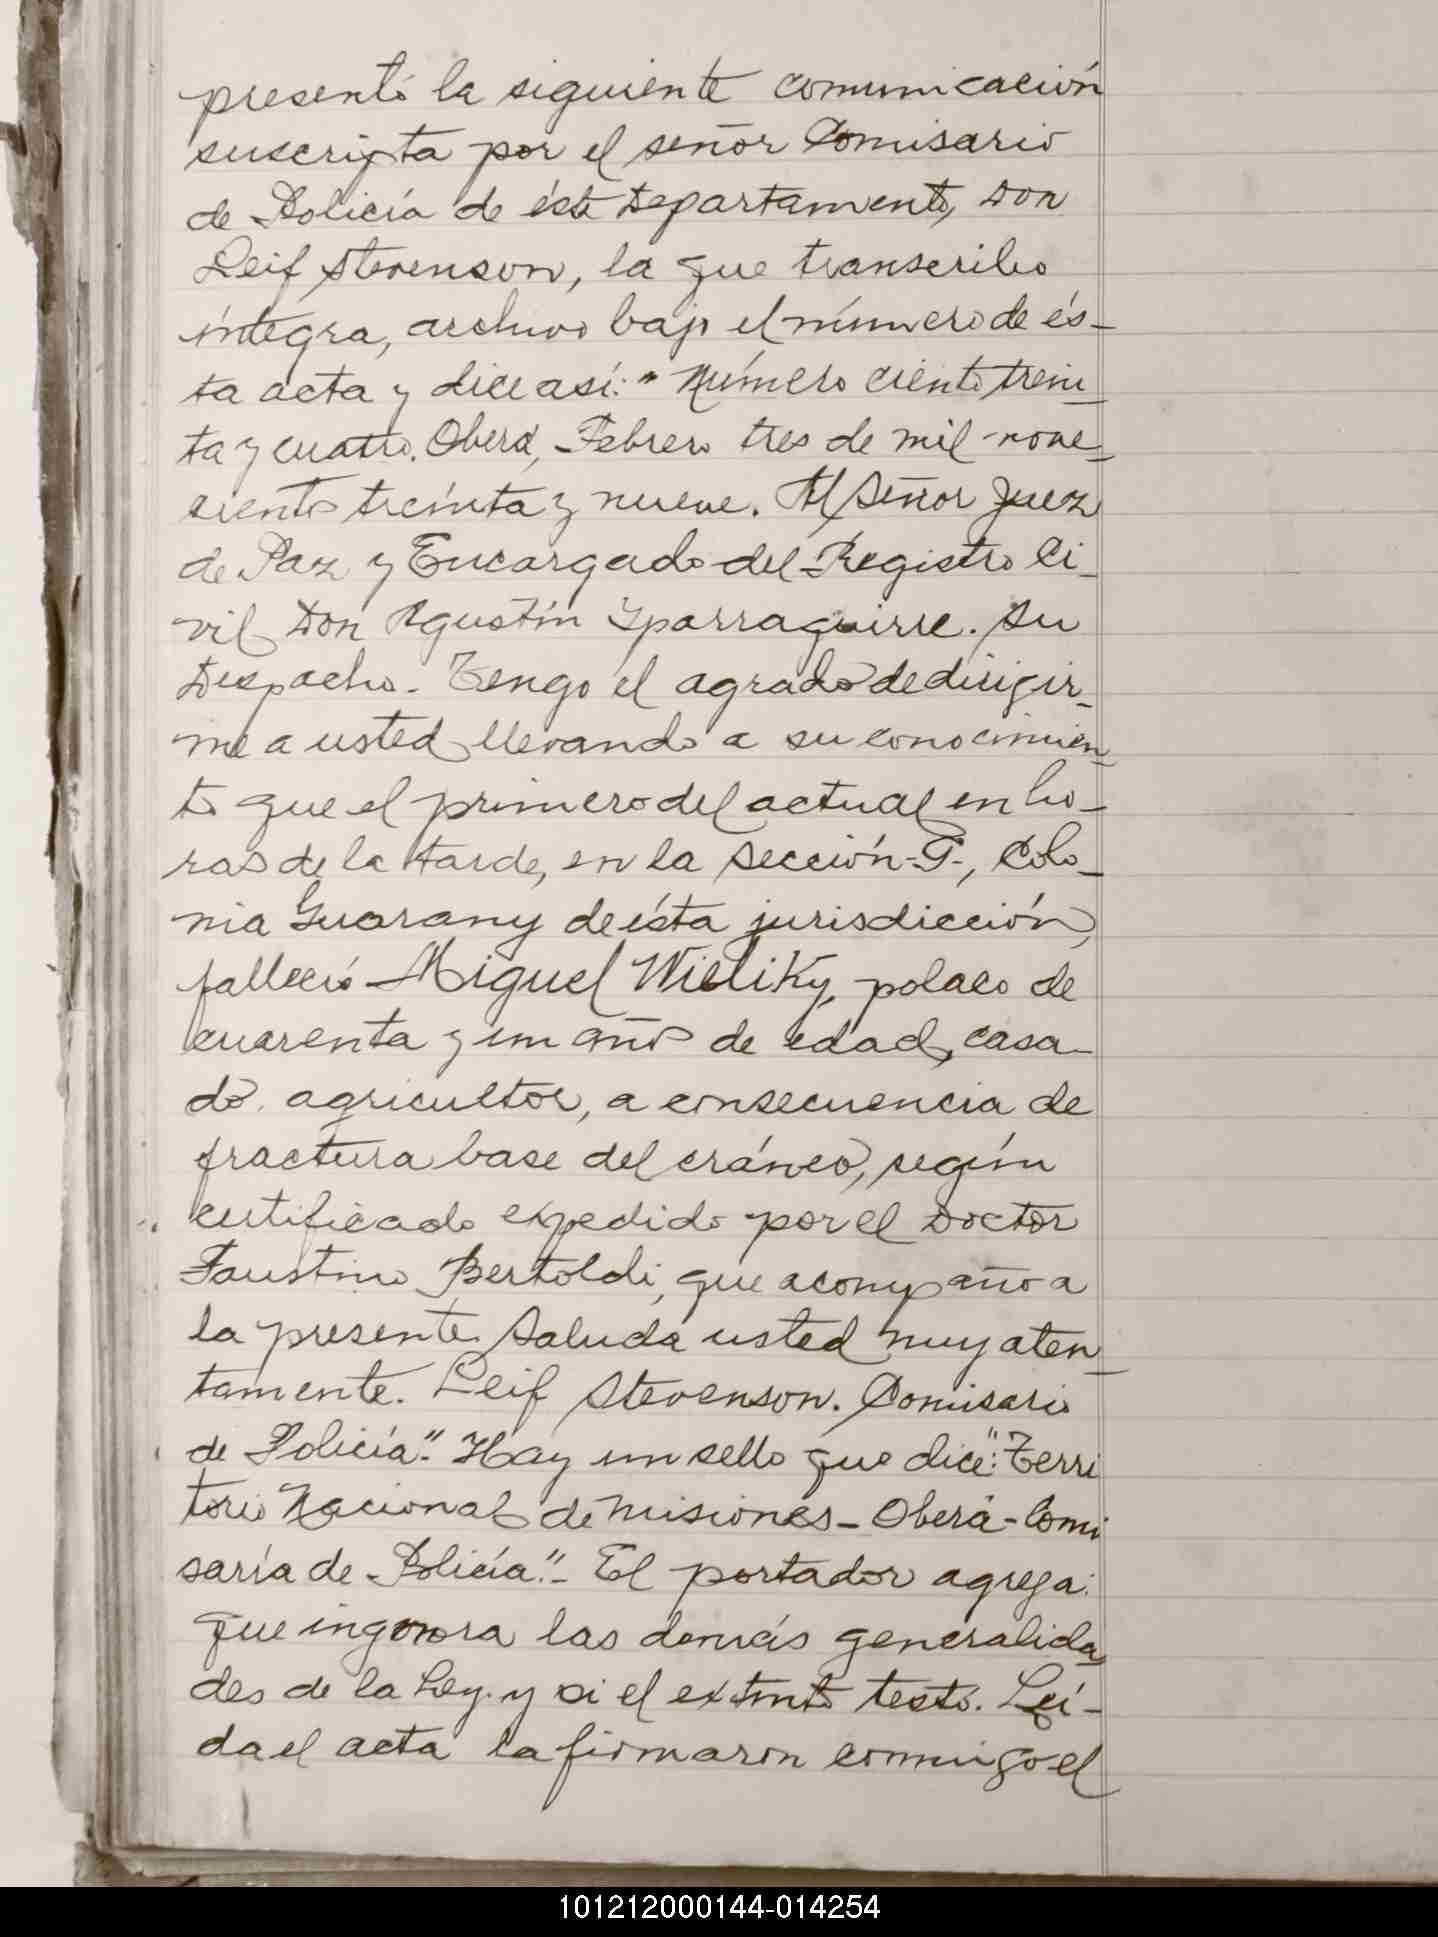 presentó la siguiente comunicación
suscripta por el señor Comisario
de Policía de éste Departamento, Don
Leif Stevenson, la que transcribo
íntegra, archivo bajo el número de és-
ta acta y dice así: "Número ciento trein-
ta y cuatro. Oberá, Febrero tres de mil nove-
ciento treinta y nueve. Al Señor Juez
de Paz y Encargado del Registro Ci-
vil Don Agustín Yparraguirre. Su
Despacho. Tengo el agrado de dirigir-
me a usted llevando a su conocimien-
to que el primero del actual en ho-
ras de la tarde, en la Sección -G-, Colo-
nia Guarany de ésta jurisdicción,
falleció Miguel Wieliky, polaco de
cuarenta y un años de edad, casa-
do, agricultor, a consecuencia de
fractura base del cráneo, según
certificado expedido por el Doctor
Faustino Bertoldi, que acompaño a
la presente. Saluda usted muy aten-
tamente. Leif Stevenson. Comisario
de Policía". Hay un sello que dice: "Terri
torio Nacional de Misiones - Oberá - Comi
saría de Policía". - El portador agrega:
que ingonora las demás generalida-
des de la Ley y si el extinto testó. Leí-
da el acta la firmaron conmigo el
101212000144-014254